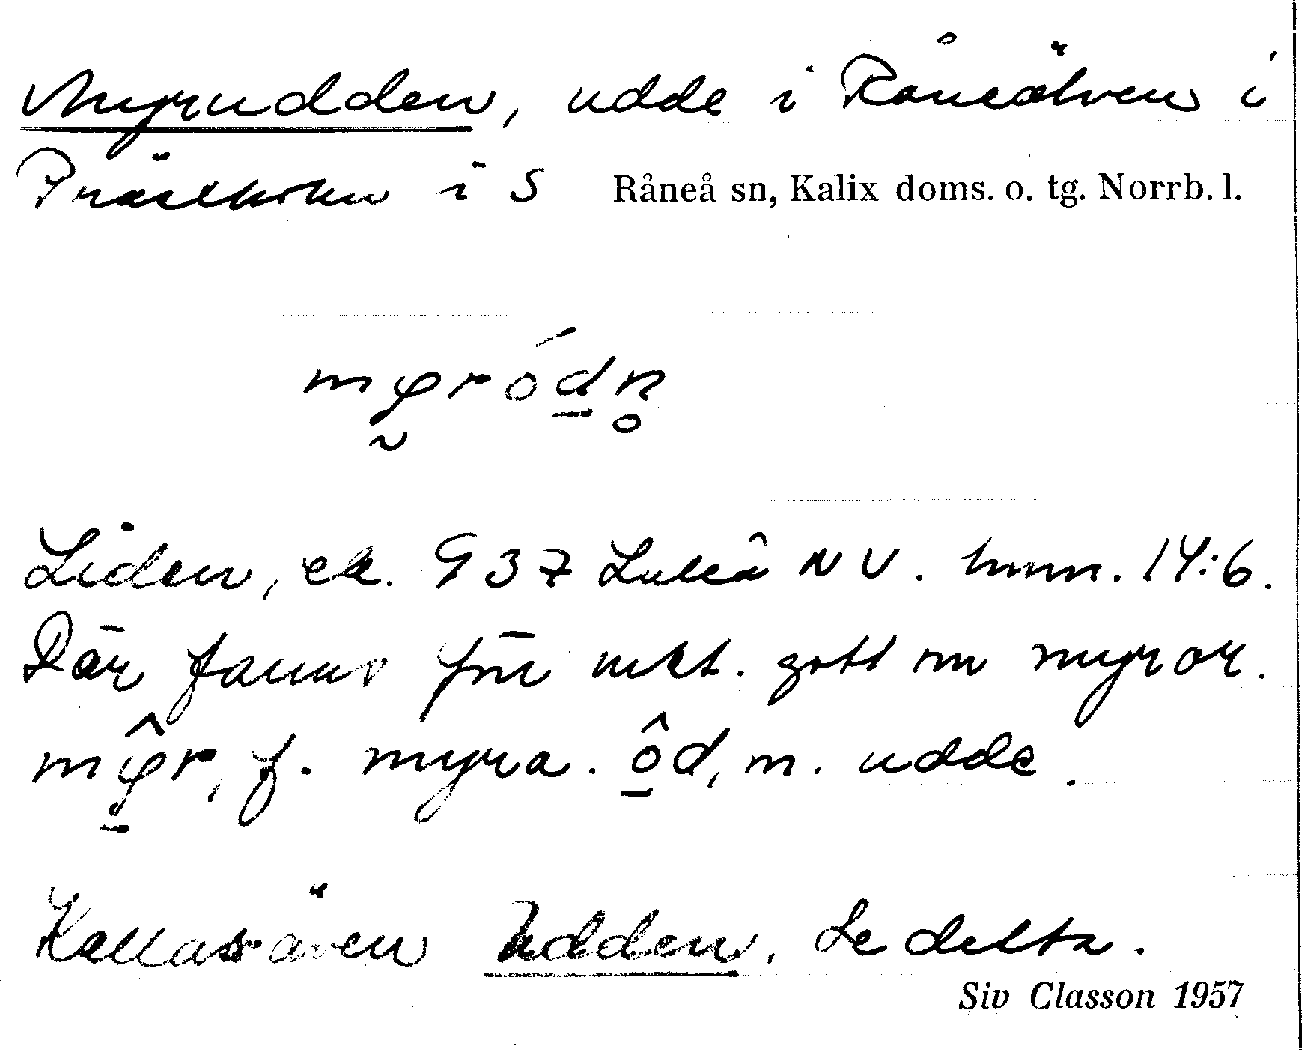 Myrudden, udde i Råneälven i
Prästholm i S Råneå sn, Kalix doms. o. tg. Norrb. l.
myródn̥
Liden, ek. 937 Luleå NV. hmm. 14:6.
Där fanns förr mkt. gott om myror.
mŷr, f. myra. ôd, m. udde.
Kallas även Udden. Se detta.
Siv Classon 1957